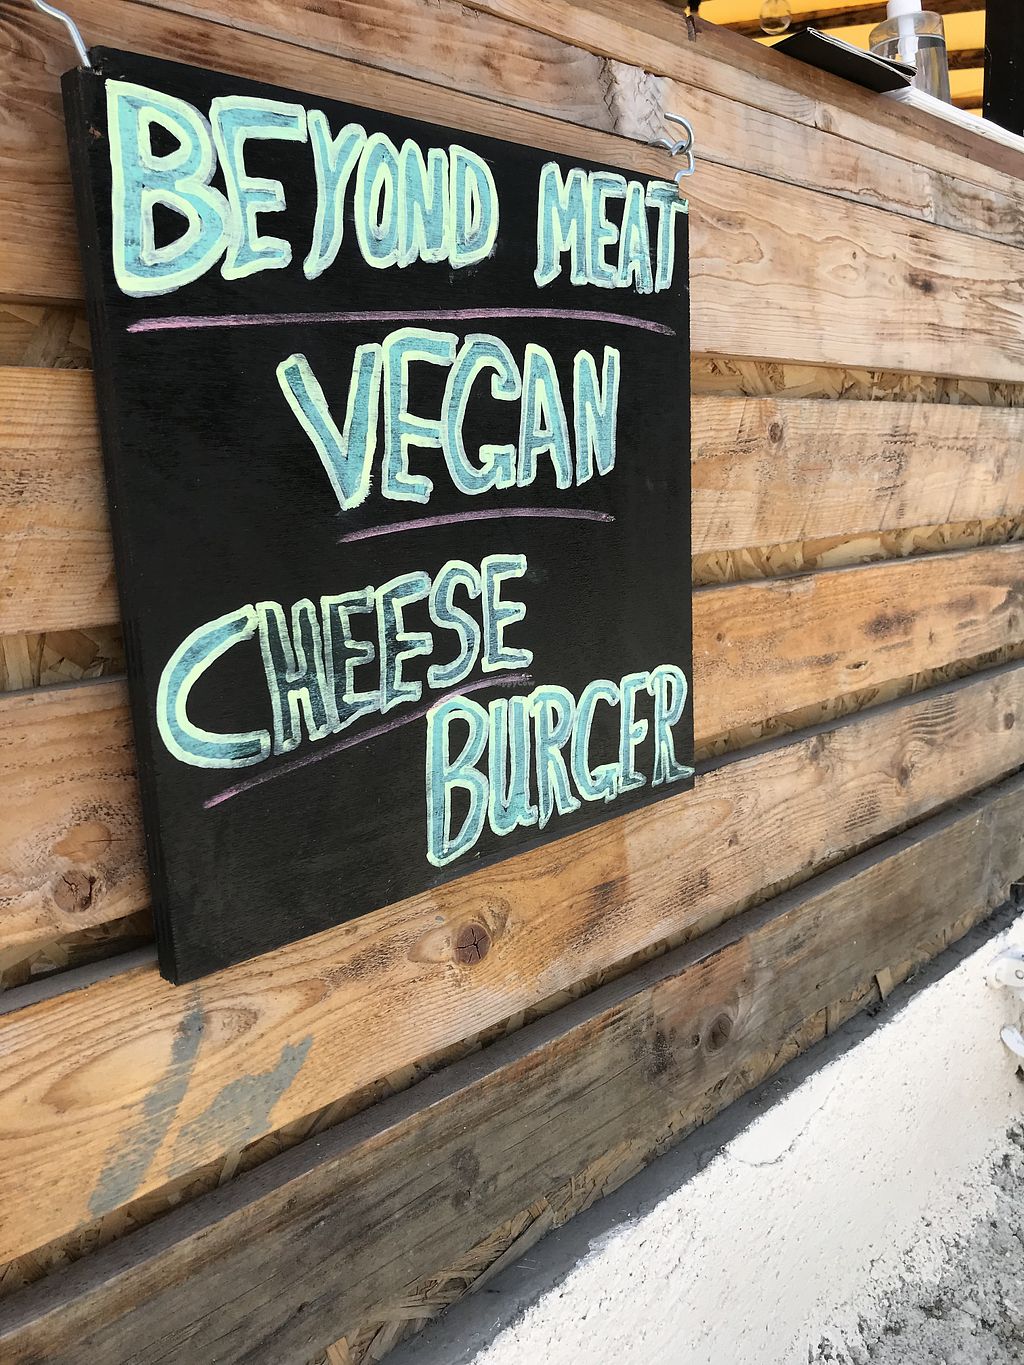 BEYOND MEAT
VEGAN
CHEESE
BURGER